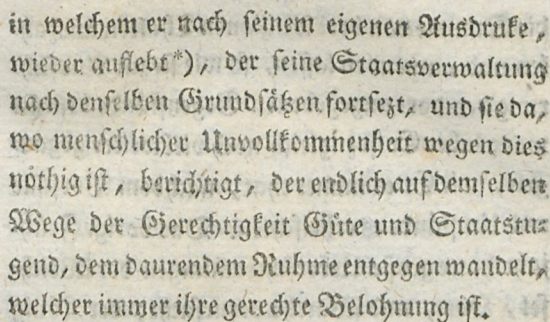 in welchem er nach seinem eigenen Ausdruke,
wieder auflebt*), der seine Staatsverwaltung
nach denselben Grundsätzen fortsezt, und sie da,
wo menschlicher Unvollkommenheit wegen dies
nöthig ist, berichtigt, der endlich auf demselben
Wege der Gerechtigkeit Güte und Staatstu-
gend, dem daurendem Ruhme entgegen wandelt,
welcher immer ihre gerechte Belohnung ist.